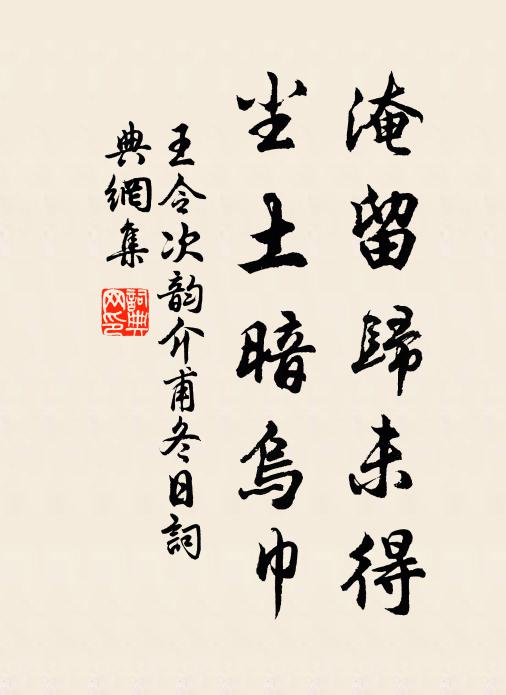 淹留歸未得
尘土暗烏巾
王令次韵介甫冬日詞
典網集
詞典网印